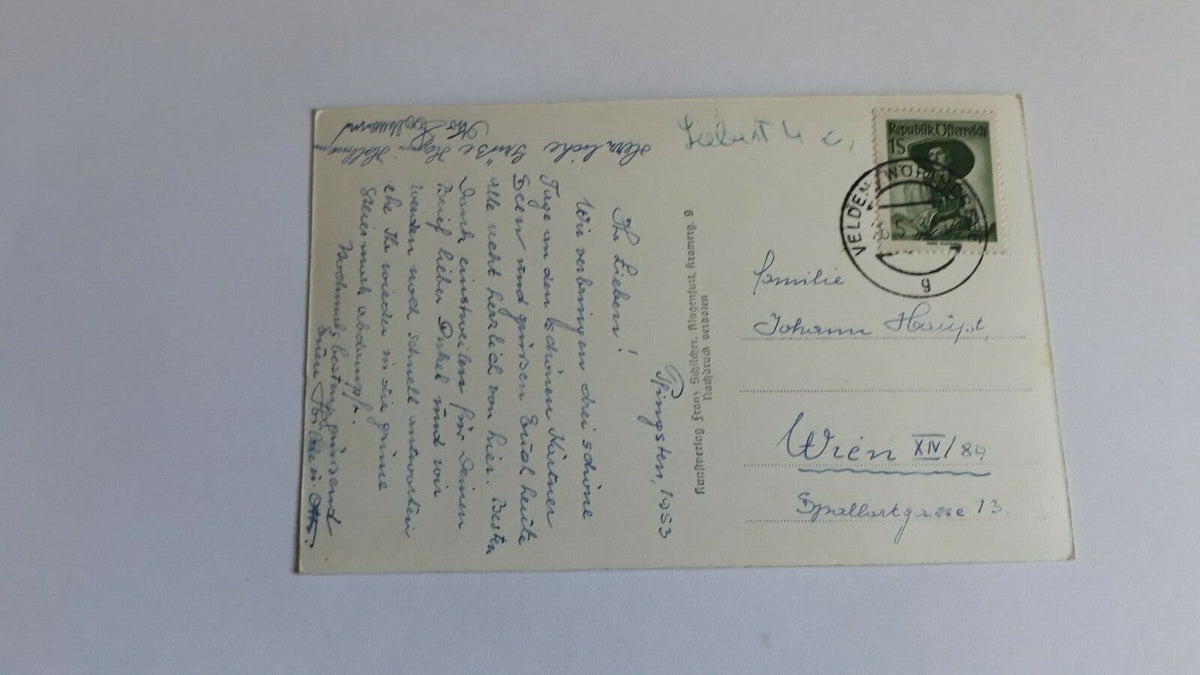 Pfingsten, 1953
Ihr Lieben!
Wir verbringen drei schöne
Tage an den schönen Kärtner
Seen und grüssen Euch heute
alle recht herzlich von hier. Besten
Dank einstweilen für Deinen
Brief lieber Onkel und wir
werden noch schnell antworten
ehe Ihr wieder in die grüne
Steiermark abdampft.
Nochmals bestens grüssend
Herzliche Grüße
Kunstverlag Franz Schilcher, Klagenfurt, Kramerg. 9
Nachdruck verboten
Republik Österreich
1S
VELDEN
g
Familie
Johann Haupt,
Wien XIV/89
Spallartgasse 13.